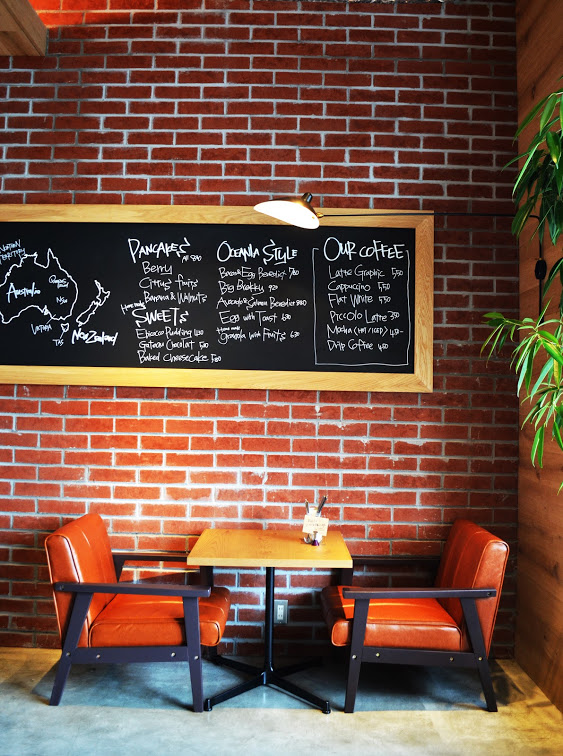 Northern
Territory
Australia
NSW
Victoria
TAS
New Zealand
Pancakes
Berry
Citrus fruits
Banana & Walnuts
Home made
Sweets
Gateau Chocolat 500
Baked Cheesecake
Oceania Style
Bacon & Egg Benedict
Big Brekky
Avocado & Salmon Benedict
Egg with Toast
Home made
Granola with Fruits
Our Coffee
Latte Graphic 550
Cappuccino 550
Flat White 550
Piccolo Latte 350
Mocha (Hot/Iced)
Drip Coffee